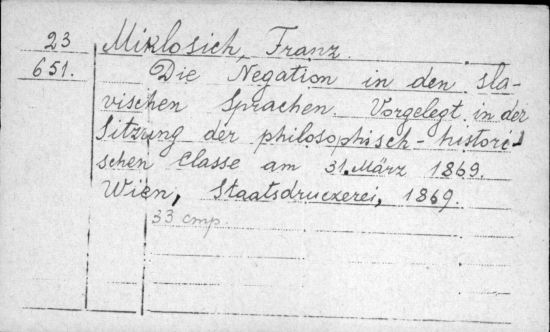 23
651.
Miklosich, Franz.
Die Negation in den sla-
vischen Sprachen. Vorgelegt in der
Sitzung der philosophisch-histori-
schen Classe am 31. März 1869.
Wien, Staatsdruckerei, 1869.
33 cmp.